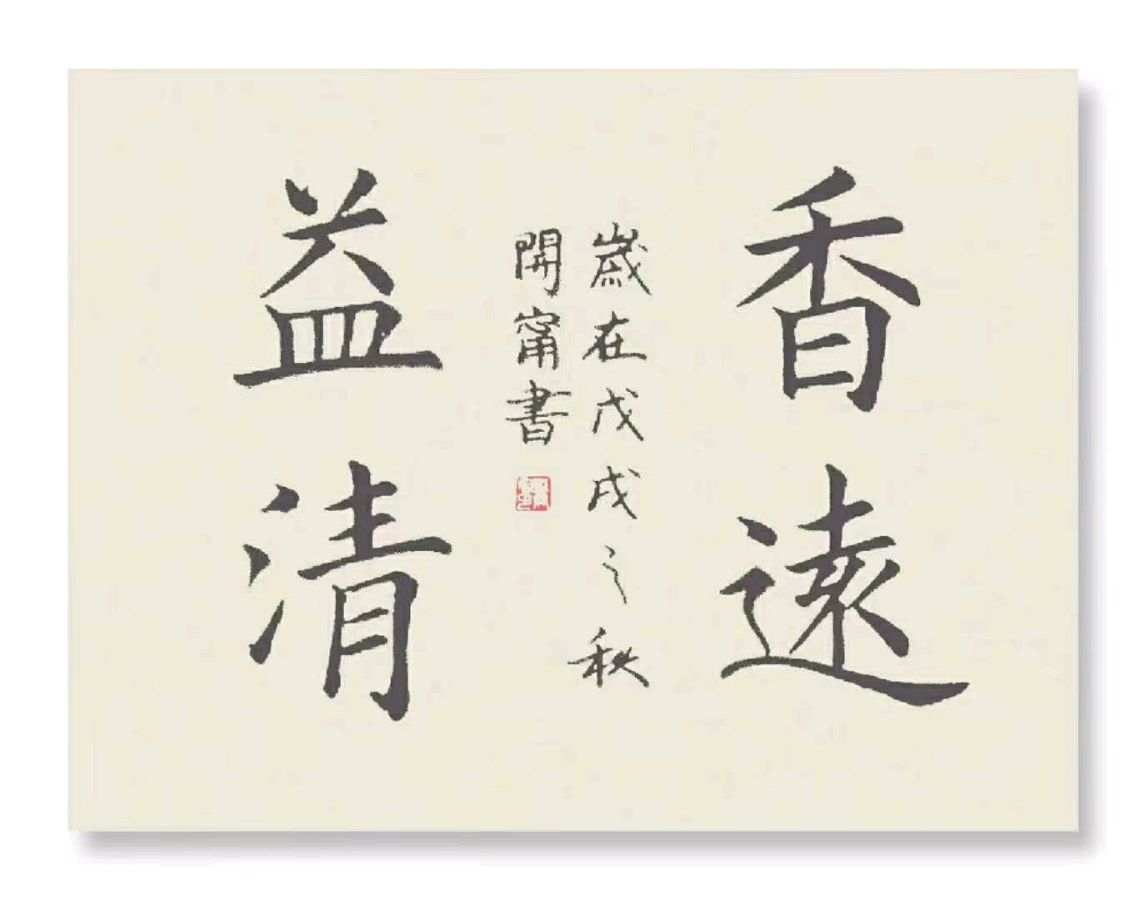 香遠
益清
歲在戊戌之秋
開甯書